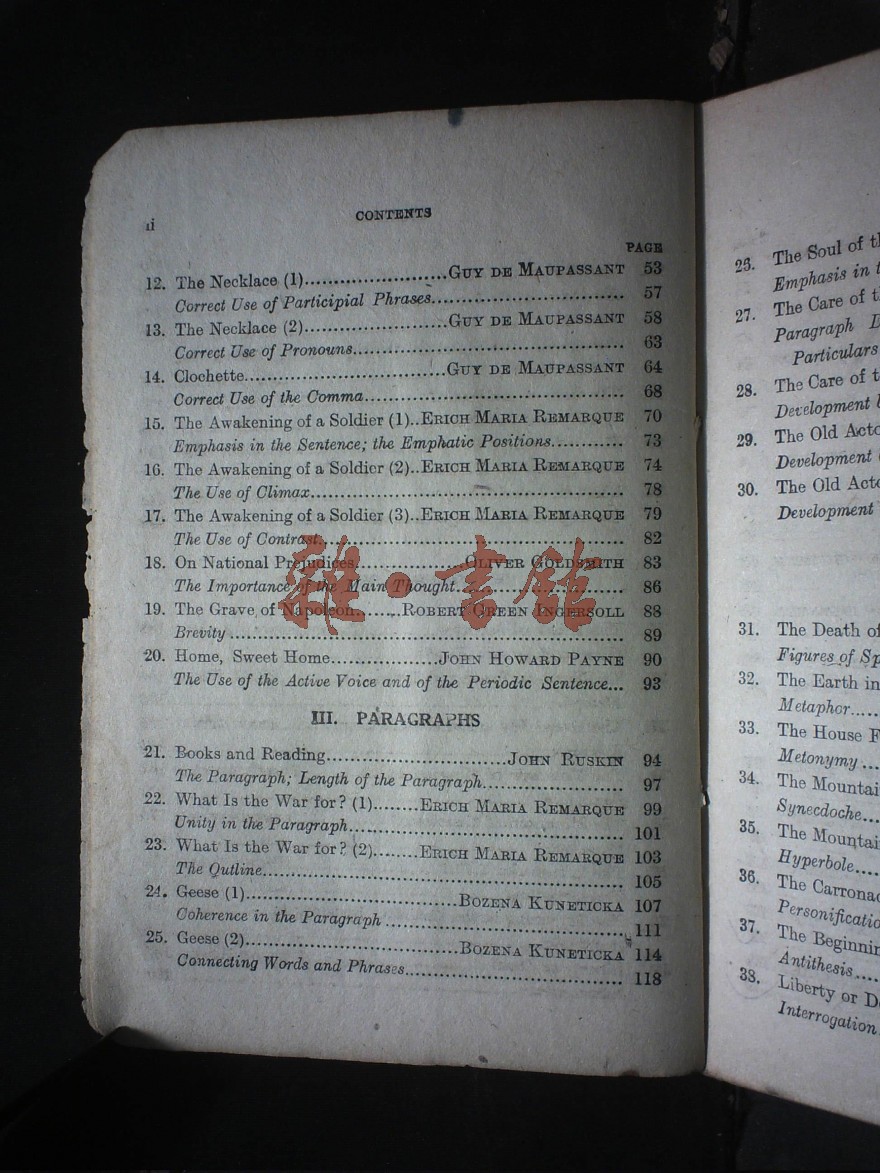 ii
CONTENTS
PAGE
12. The Necklace (1)........................GUY DE MAUPASSANT 53
Correct Use of Participial Phrases............................ 57
13. The Necklace (2)........................GUY DE MAUPASSANT 58
Correct Use of Pronouns........................................ 63
14. Clochette................................GUY DE MAUPASSANT 64
Correct Use of the Comma...................................... 68
15. The Awakening of a Soldier (1)..ERICH MARIA REMARQUE 70
Emphasis in the Sentence; the Emphatic Positions............ 73
16. The Awakening of a Soldier (2)..ERICH MARIA REMARQUE 74
The Use of Climax............................................... 78
17. The Awakening of a Soldier (3)..ERICH MARIA REMARQUE 79
The Use of Contrast............................................. 82
18. On National Prejudices.................OLIVER GOLDSMITH 83
The Importance of the Main Thought.......................... 86
19. The Grave of Napoleon........ROBERT GREEN INGERSOLL 88
Brevity ......................................................... 89
20. Home, Sweet Home.................JOHN HOWARD PAYNE 90
The Use of the Active Voice and of the Periodic Sentence... 93
III. PARAGRAPHS
21. Books and Reading.............................JOHN RUSKIN 94
The Paragraph; Length of the Paragraph...................... 97
22. What Is the War for? (1)........ERICH MARIA REMARQUE 99
Unity in the Paragraph......................................... 101
23. What Is the War for? (2)........ERICH MARIA REMARQUE 103
The Outline..................................................... 105
24. Geese (1)..................................BOZENA KUNETICKA 107
Coherence in the Paragraph .................................... 111
25. Geese (2)..................................BOZENA KUNETICKA 114
Connecting Words and Phrases................................. 118
雜·書館
26. The Soul of
Emphasis in
27. The Care of
Paragraph
Particulars
28. The Care of
Development
29. The Old
Development
30. The Old
Development
31. The Death of
Figures of
32. The Earth in
Metaphor.....
33. The House
Metonymy ...
34. The
Synecdoche...
35. The
Hyperbole....
36. The
37. The
Antithesis....
38. Liberty or
Interrogation